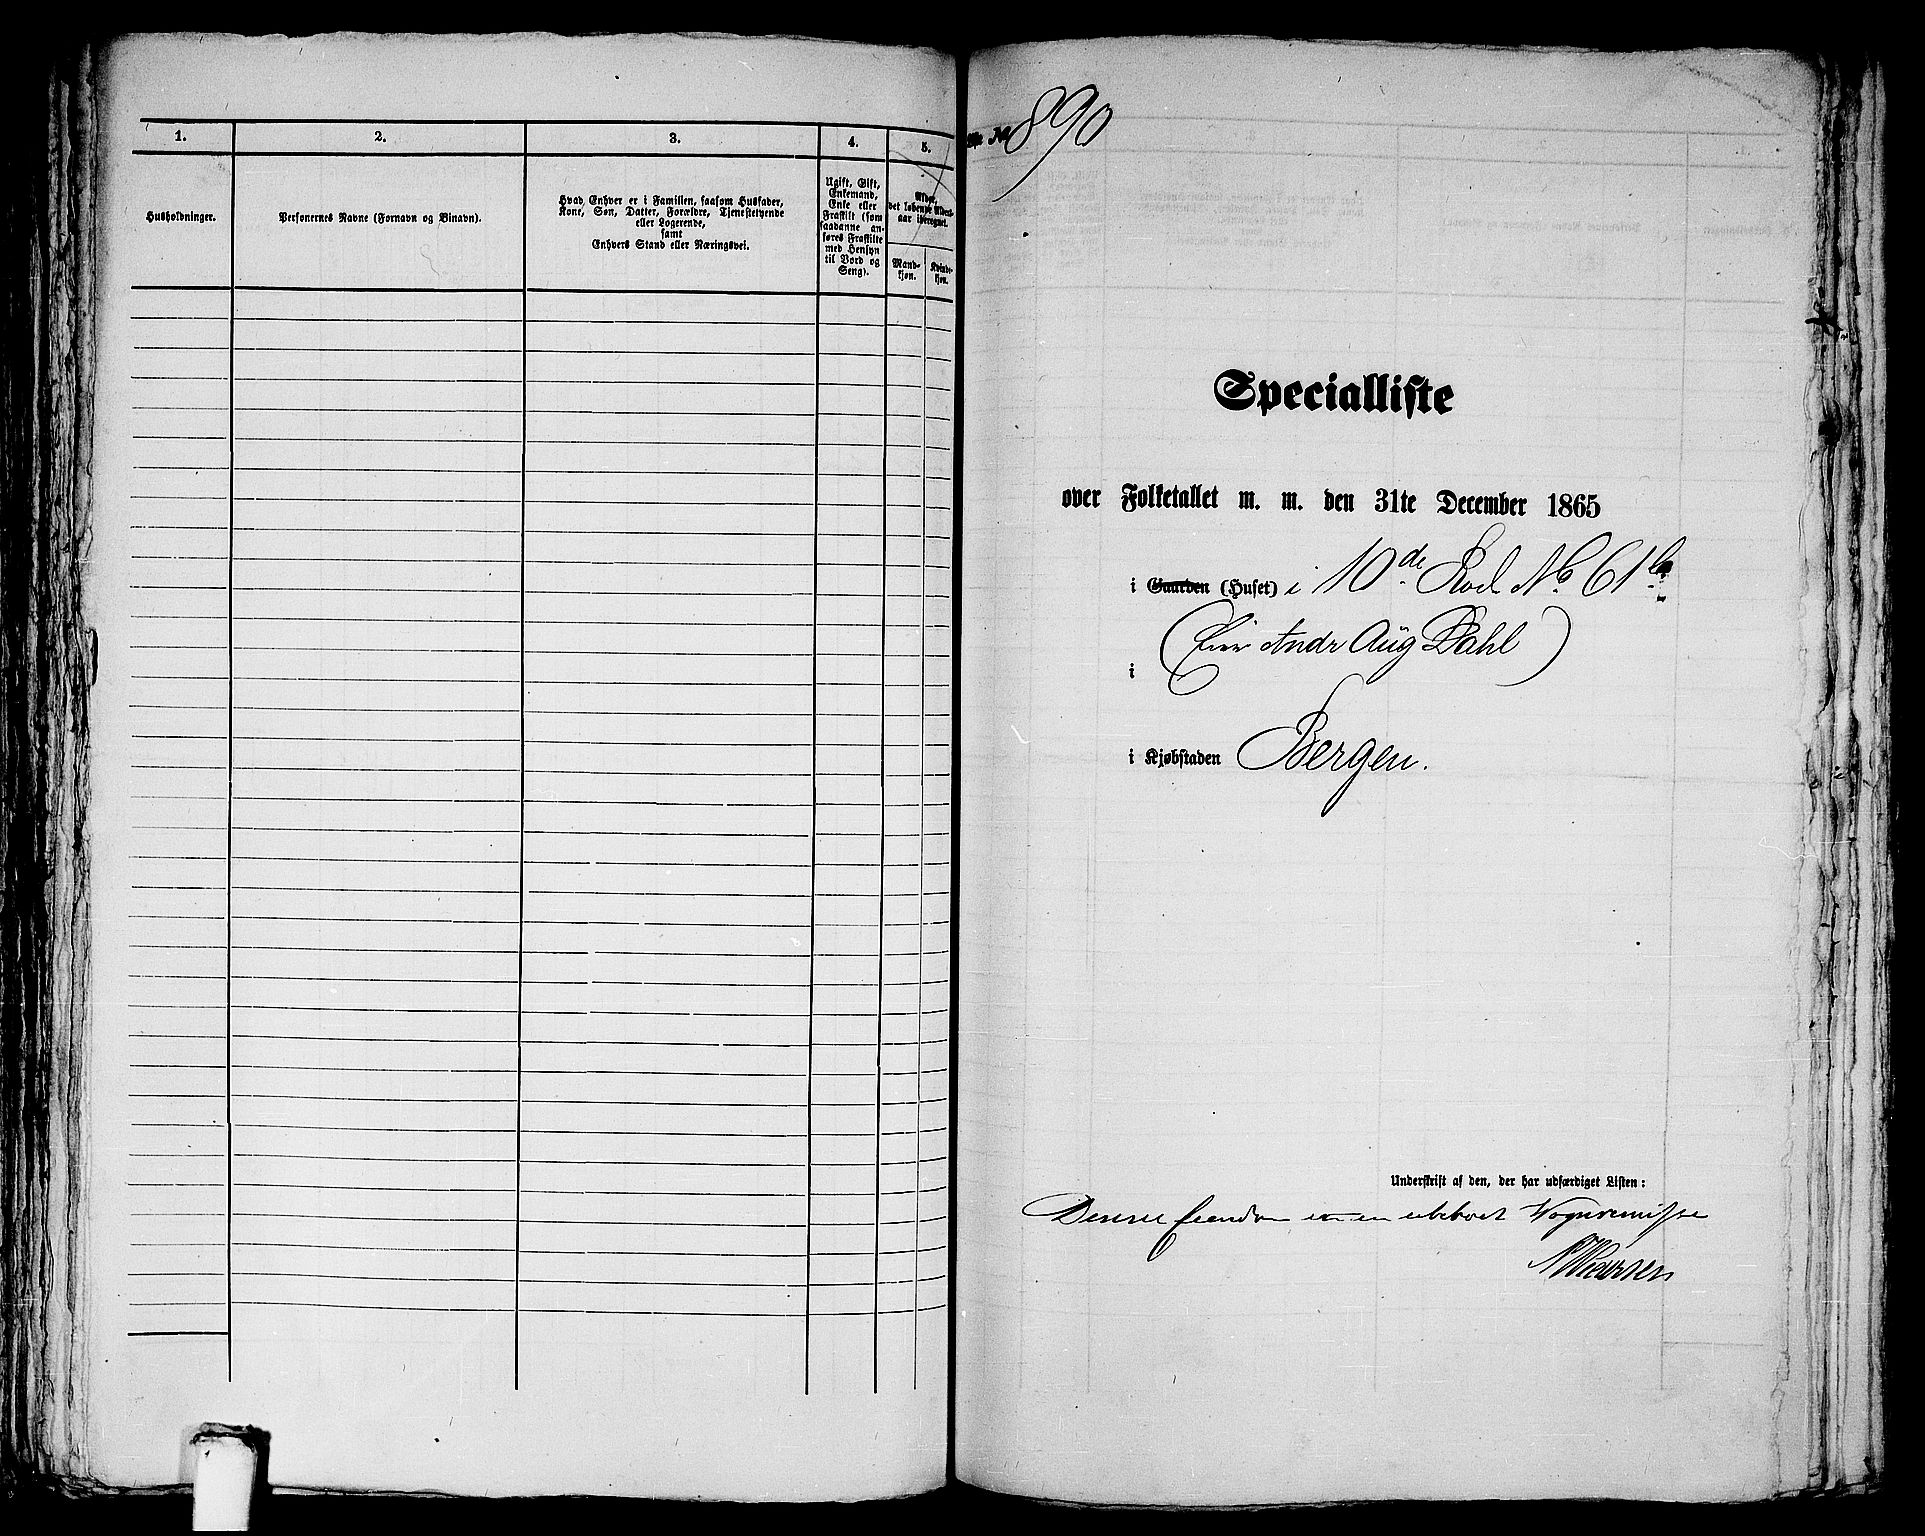 1.
2.
3.
4.
5.
Husholdninger.
Personernes Navne (Fornavn og Binavn).
Hvad Enhver er i Familien, saasom Husfader,
Kone, Søn, Datter, Forældre, Tjenestetyende
eller Logerende,
samt
Enhvers Stand eller Næringsvei.
Ugift, Gift,
Enkemand,
Enke eller
Fraskilt (som
saadanne an-
føres Fraskilte
med Hensyn
til Bord og
Seng).
Alder,
det løbende Alders-
aar iberegnet.
Mand-
kjøn.
Kvinde-
kjøn.
890
Specialliste
over Folketallet m. m. den 31te December 1865
i Gaarden (Huset) i 10de Rod No 61
(Eier Andr Aug Dahl)
i
i Kjøbstaden Bergen.
Underskrift af den, der har udfærdiget Listen:
Denne Eiendom er en ubeboet Vognremisse